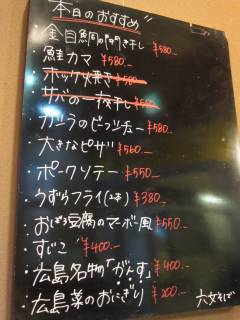 本日のおすすめ
・金目鯛の開き干し ¥580-
・鮭カマ ¥580-
・ホッケ焼き ¥580-
・サバの一夜干し ¥580-
・ガツラのビーフシチュー ¥580-
・大きなピザ ¥560-
・ポークソテー ¥550-
・うずらフライ(2本) ¥380-
・おぼろ豆腐のマーボー風 ¥550-
・すじこ ¥400-
・広島名物「がんす」 ¥400-
・広島菜のおにぎり ¥200-
六文そば